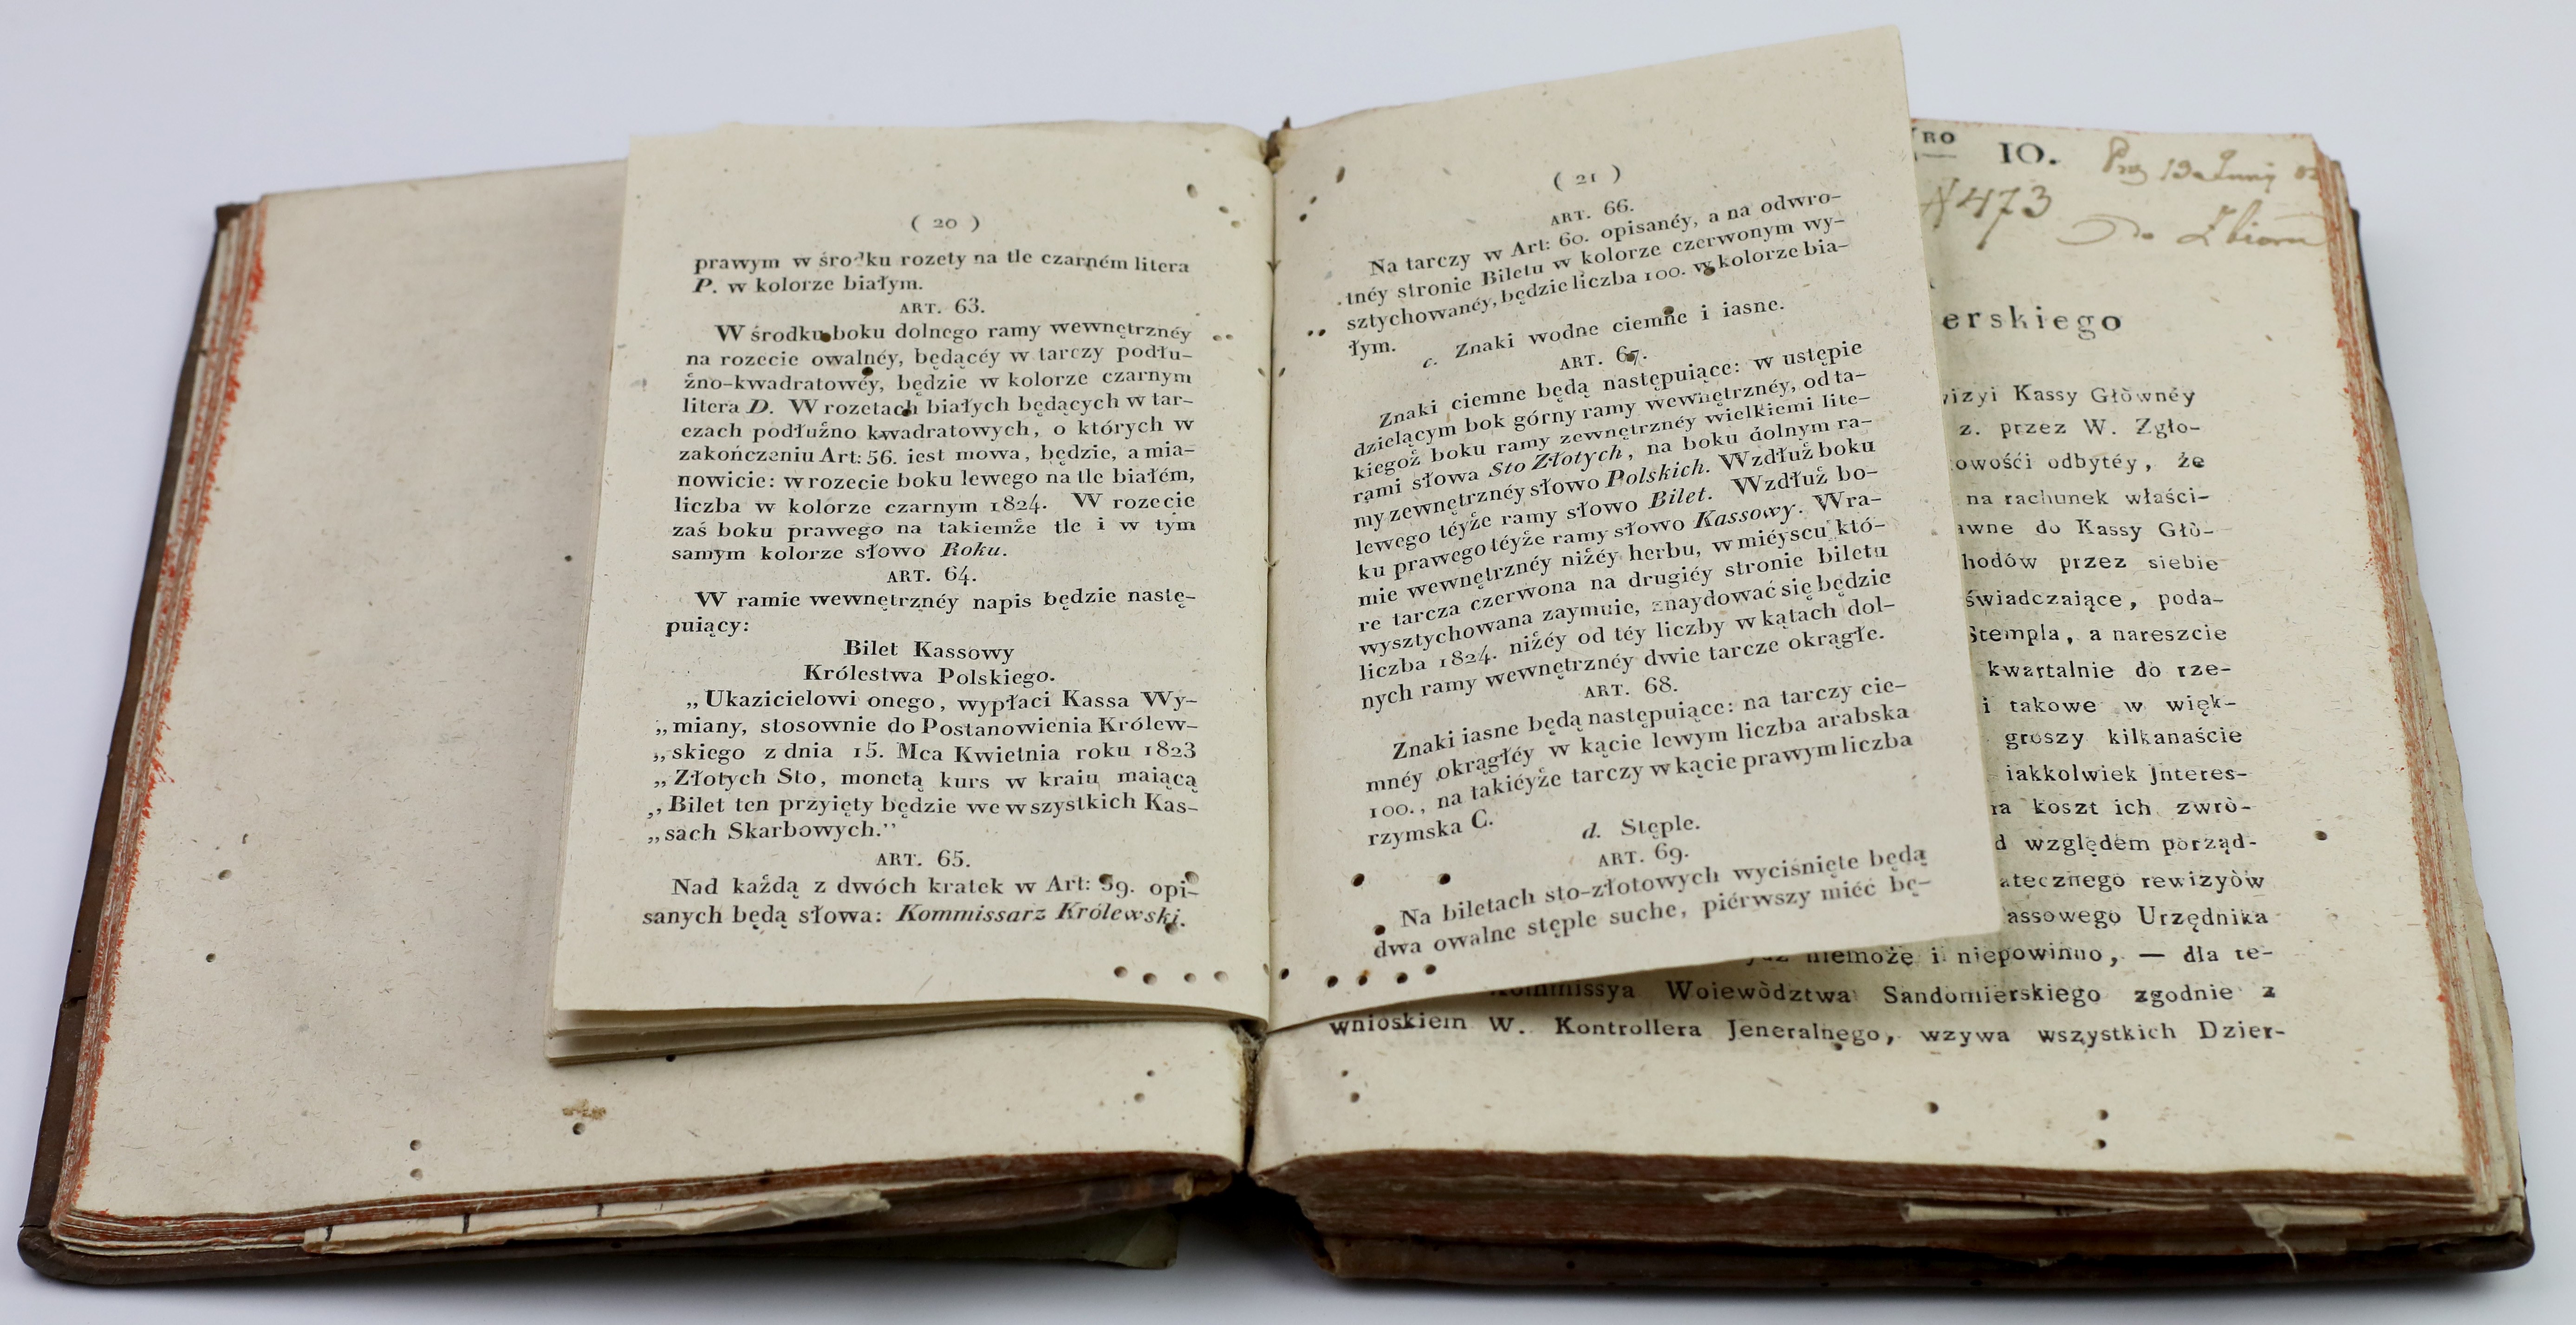 ( 20 )
prawym w środku rozety na tle czarném litera
P. w kolorze białym.
ART. 63.
W środku boku dolnego ramy wewnętrznéy
na rozecie owalnéy, będącéy w tarczy podłu-
źno-kwadratowéy, będzie w kolorze czarnym
litera D. W rozetach białych będących w tar-
czach podłuźno kwadratowych, o których w
zakończeniu Art: 56. iest mowa, będzie, a mia-
nowicie: w rozecie boku lewego na tle białém,
liczba w kolorze czarnym 1824. W rozecie
zaś boku prawego na takiemże tle i w tym
samym kolorze słowo Roku.
ART. 64.
W ramie wewnętrznéy napis będzie nastę-
puiący:
Bilet Kassowy
Królestwa Polskiego.
„Ukazicielowi onego, wypłaci Kassa Wy-
„miany, stosownie do Postanowienia Królew-
„skiego z dnia 15. Mca Kwietnia roku 1823
„Złotych Sto, monetą kurs w kraiu maiącą
„Bilet ten przyięty będzie we wszystkich Kas-
„sach Skarbowych.”
ART. 65.
Nad każdą z dwóch kratek w Art: 59. opi-
sanych będą słowa: Kommissarz Królewski.
( 21 )
ART. 66.
Na tarczy w Art: 60. opisanéy, a na odwro-
tnéy stronie Biletu w kolorze czerwonym wy-
sztychowanéy, będzie liczba 100. w kolorze bia-
łym.
c. Znaki wodne ciemne i iasne.
ART. 67.
Znaki ciemne będą następuiące: w ustępie
dzielącym bok górny ramy wewnętrznéy, od ta-
kiegoż boku ramy zewnętrznéy wielkiemi lite-
rami słowa Sto Złotych, na boku dolnym ra-
my zewnętrznéy słowo Polskich. Wzdłuż boku
lewego téyże ramy słowo Bilet. Wzdłuż bo-
ku prawego téyże ramy słowo Kassowy. W ra-
mie wewnętrznéy niżéy herbu, w miéyscu któ-
re tarcza czerwona na drugiéy stronie biletu
wysztychowana zaymuie, znaydować się będzie
liczba 1824. niżéy od téy liczby w kątach dol-
nych ramy wewnętrznéy dwie tarcze okrągłe.
ART. 68.
Znaki iasne będą następuiące: na tarczy cie-
mnéy okrągłéy w kącie lewym liczba arabska
100., na takiéyże tarczy w kącie prawym liczba
rzymska C.
d. Stęple.
ART. 69.
Na biletach sto-złotowych wyciśnięte będą
dwa owalne stęple suche, piérwszy miéć bę-
10.
N 473
Do Zbioru
erskiego
izyi Kassy Główнéy
z. przez W. Zgło-
owości odbytéy, że
na rachunek właści-
awne do Kassy Głò-
hodów przez siebie
świadczaiące, poda-
Stempla, a nareszcie
kwartalnie do rze-
i takowe w więk-
groszy kilkanaście
iakkolwiek Jnteres-
na koszt ich zwrò-
d względem porząd-
atecznego rewizyòw
assowego Urzędnika
niemoże i niepowinno, — dla te-
ommissya Woiewòdztwa Sandomierskiego zgodnie z
wnioskiem W. Kontrollera Jeneralnego, wzywa wszystkich Dzier-